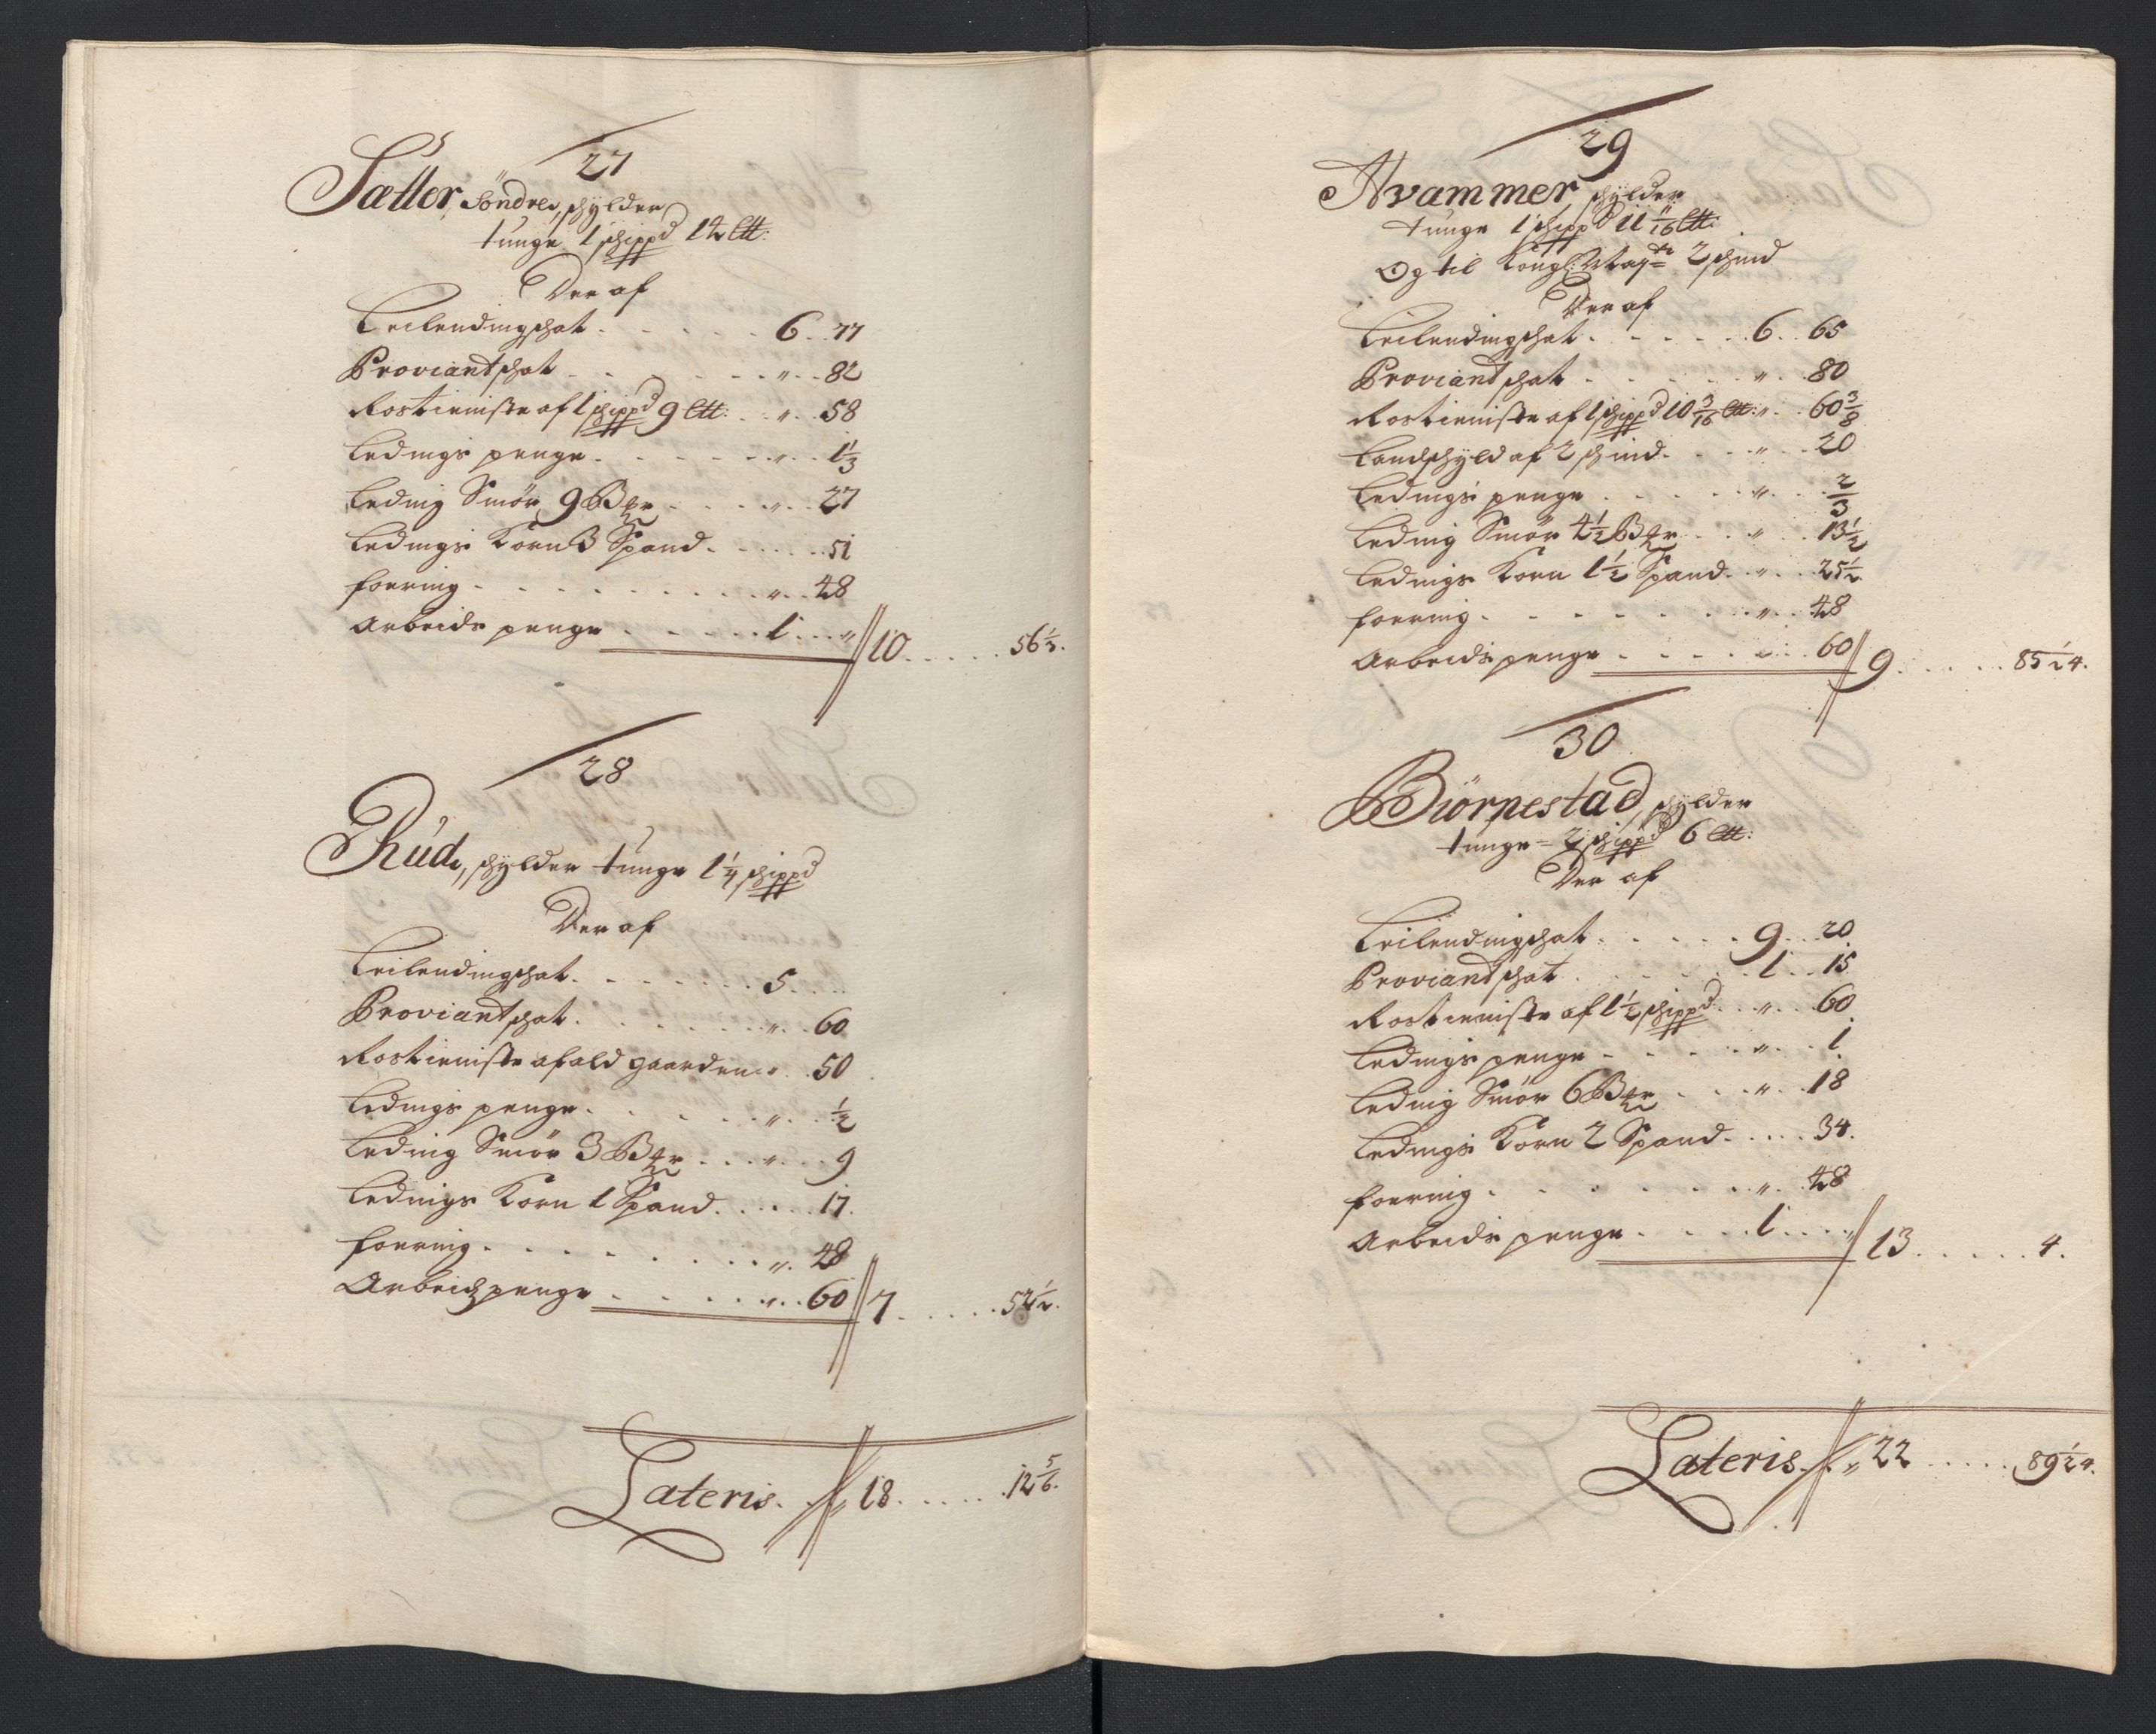 27
Sætter Söndre, schylder
tunge 1 schippd 12 Ltt:
Der af
Leilendingschat . . . 6 . . 77
Proviantschat . . . " . . 82
Rostieniste af 1 schippd 9 Ltt: . . " . . 58
Ledings penge . . . " . . 1 1/3
Leding Smör 9 Bpr . . . " . . 27
Ledings Korn 3 Spand . . . 51
foering . . . " . . 48
Arbeids penge . . . 1 . . " // 10 . . . 56 1/3.
28
Rud, schylder tunge 1 1/4 schippd
Der af
Leilendingschat . . . 5 . .
Proviantschat . . . " . . 60
Rostieniste af ald gaarden " . . 50
Ledings penge . . . " . . 1/2
Leding Smör 3 Bpr . . . " . . 9
Ledings Korn 1 Spand . . . 17.
foering . . . " . . 48
Arbeidspenge . . . " . . 60 // 7 . . . 52 1/2.
Lateris . . // 18 . . . 12 5/6.
29
Hvammer, schylder
tunge 1 schippd 11 11/16 Ltt:
Og til Kongl: Maytt 2 schind
Der af
Leilendingschat . . . 6 . . 65
Proviantschat . . . " . . 80
Rostieniste af 1 schippd 10 3/16 Ltt: " . . 60 3/8
Landschyld af 2 schind . . . " . . 20
Ledings penge . . . " . . 2/3
Leding Smör 4 1/2 Bpr . . " . . 13 1/2
Ledings Korn 1 1/2 Spand . . " . . 25 1/2
foering . . . " . . 48
Arbeids penge . . . 60 // 9 . . . 85 1/24.
30
Biörnestad, schylder
tunge 2 schippd 6 Ltt:
Der af
Leilendingschat . . . 9 . . 20.
Proviantschat . . . 1 . . 15
Rostieniste af 1 1/2 schippd . . " . . 60
Ledings penge . . . " . . 1.
Leding Smör 6 Bpr . . . " . . 18
Ledings Korn 2 Spand . . . 34.
foering . . . " . . 48
Arbeids penge . . . 1 . . " // 13 . . . 4.
Lateris . . // 22 . . . 89 1/24.